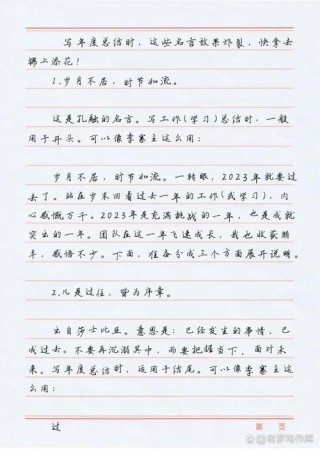 写年度总结时，这些名言效果炸裂，快拿去
锦上添花！
1.岁月不居，时节如流。
这是孔融的名言。写工作(学习)总结时，一般
用于开头。可以像李寨主这么用：
岁月不居，时节如流。一转眼，2023年就要过
去了。站在岁末回看过去一年的工作(或学习)，内
心感慨万千。2023年是充满挑战的一年，也是成就
突出的一年。团队在这一年飞速成长，我也收获颇
丰，感悟不少。下面，准备分成三个方面展开说明。
2.凡是过往，皆为序章。
出自莎士比亚。意思是：已经发生的事情，已
成过去。不要再沉溺其中，而要把握当下，面对未
来。写年度总结时，适用于结尾。可以像李寨主这
么用：
过
第 页
老罗写作库